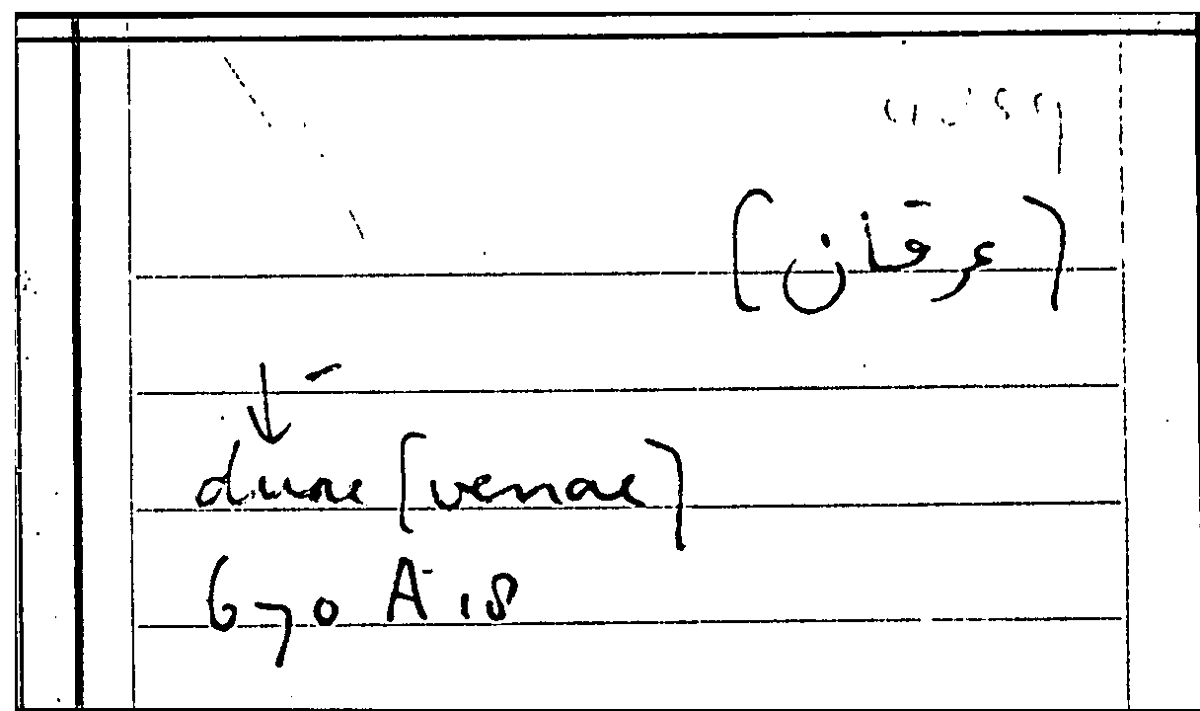 (عرقان]
duae [venae]
670 A 18